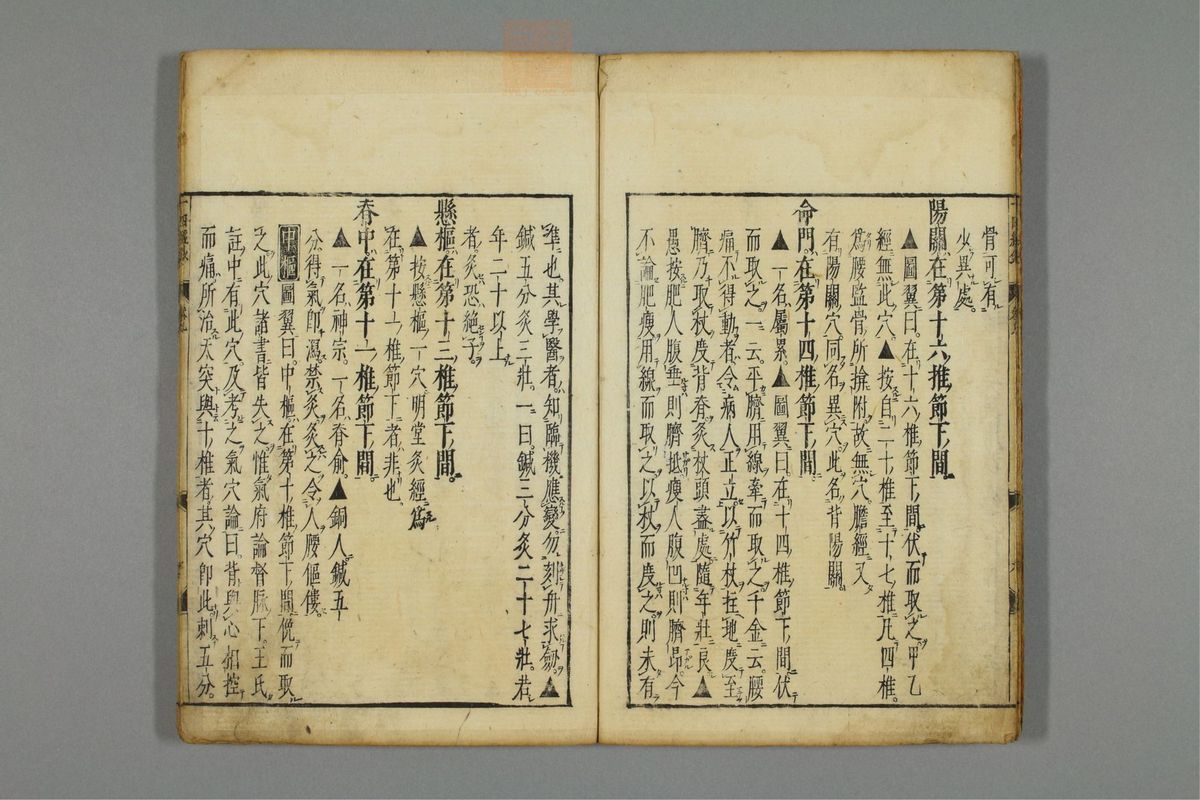 骨可有
少異處
陽關在第十六椎節下間
▲圖翼曰在十六椎節下間伏而取之甲乙
經無此穴▲按自二十椎至十七椎凡四椎
爲腰監骨所揜附故無穴膽經又
有陽關穴同名異穴此名背陽關
命門在第十四椎節下間
▲一名屬累▲圖翼曰在十四椎節下間伏
而取之一云平臍用線牽而取之千金云腰
痛不得動者令病人正立以竹杖拄地度至
臍乃取杖度背脊灸杖頭盡處隨年壯良▲
愚按肥人腹垂則臍抵瘦人腹凹則臍昻今
不論肥瘦用線而取之以杖而度之則未有
準也其學醫者知臨機應變勿刻舟求劔▲
鍼五分灸三壯一曰鍼三分灸二十七壯若
年二十以上
者灸恐絶子
懸樞在第十三椎節下間
▲按懸樞一穴明堂灸經爲
在第十一椎節下者非也
脊中在第十一椎節下間
▲一名神宗一名脊俞▲銅人鍼五
分得氣卽瀉禁灸灸之令人腰傴僂
中樞圖翼曰中樞在第十椎節下間俛而取
之此穴諸書皆失之惟氣府論督脉下王氏
註中有此穴及考之氣穴論曰背與心相控
而痛所治天突與十椎者其穴卽此刺五分